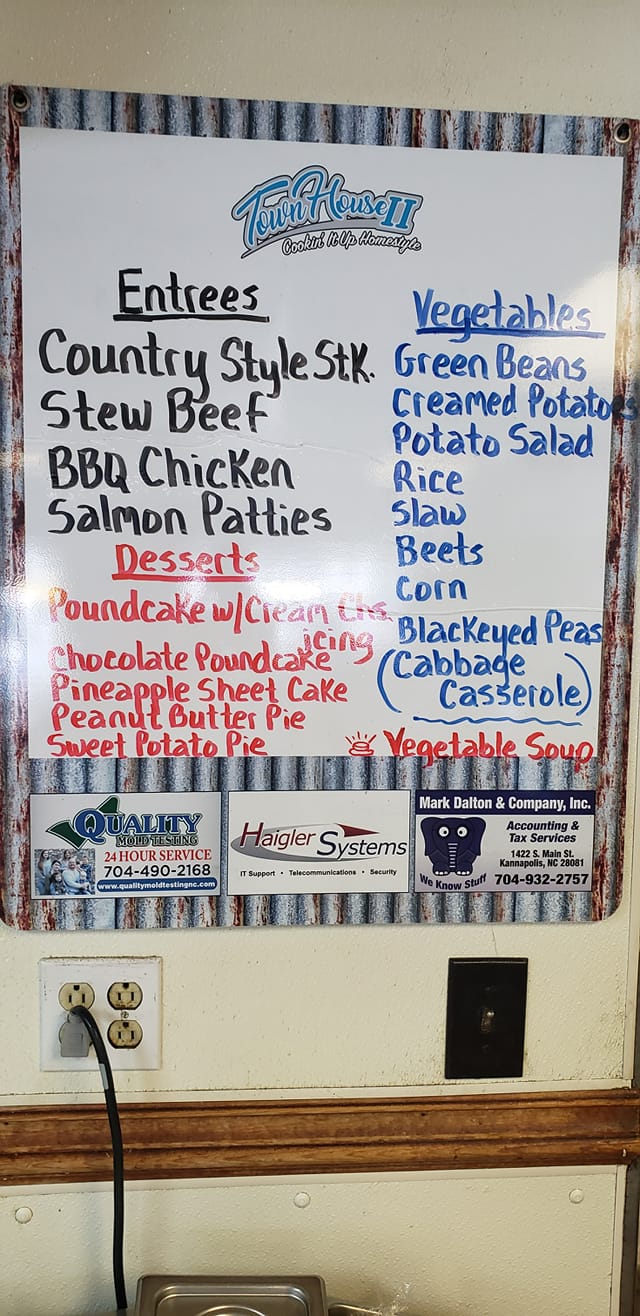 Town House II
Cookin' It Up Homestyle
Entrees
Country Style Stk.
Stew Beef
BBQ Chicken
Salmon Patties
Desserts
Poundcake w/Cream Chs.
icing
Chocolate Poundcake
Pineapple Sheet Cake
Peanut Butter Pie
Sweet Potato Pie
Vegetables
Green Beans
Creamed Potatoes
Potato Salad
Rice
Slaw
Beets
Corn
Blackeyed Peas
(Cabbage
Casserole)
Vegetable Soup
QUALITY
MOLD TESTING
24 HOUR SERVICE
704-490-2168
www.qualitymoldtestingnc.com
Haigler Systems
IT Support • Telecommunications • Security
Mark Dalton & Company, Inc.
Accounting &
Tax Services
1422 S. Main St.
Kannapolis, NC 28081
We Know Stuff
704-932-2757